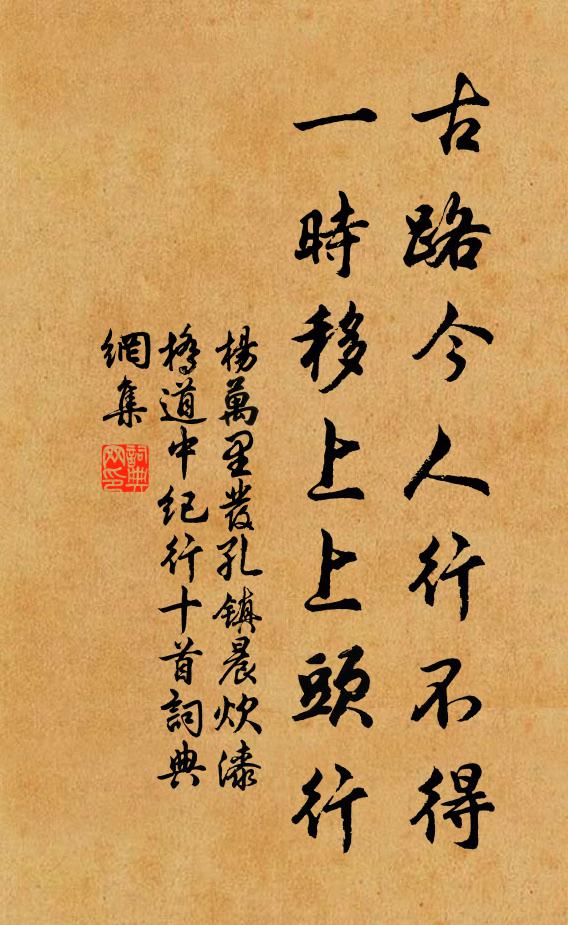 古路今人行不得
一時移上上頭行
楊萬里發孔鎮晨炊漆
橋道中紀行十首詞典
網集
詞典
網印